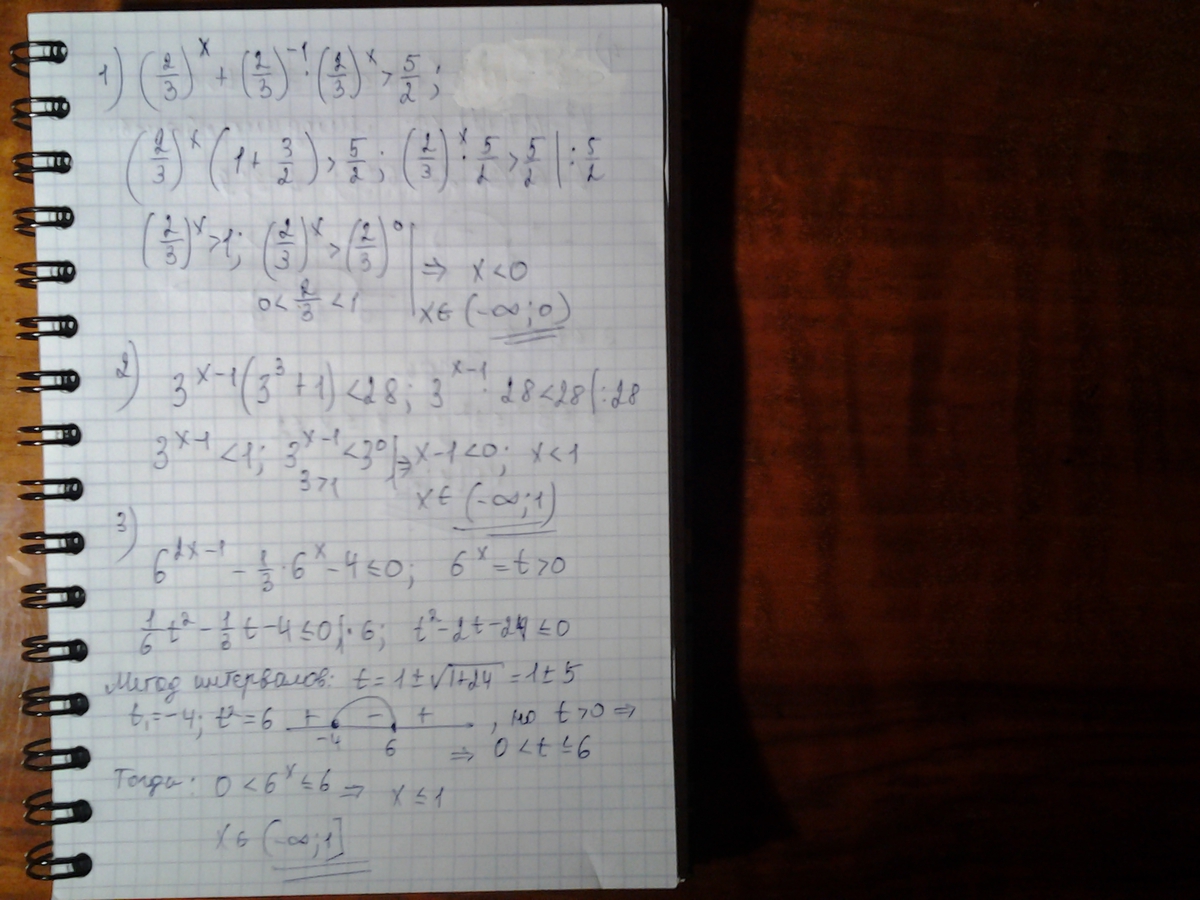 1) (2/3)^x + (2/3)^-1 · (2/3)^x > 5/2 ;
(2/3)^x (1 + 3/2) > 5/2 ; (2/3)^x · 5/2 > 5/2 | : 5/2
(2/3)^x > 1; (2/3)^x > (2/3)^0 | ⇒ x < 0
0 < 2/3 < 1 | x ∈ (-∞; 0)
2) 3^x-1 (3^3 + 1) < 28; 3^x-1 · 28 < 28 | : 28
3^x-1 < 1; 3^x-1 < 3^0 | ⇒ x - 1 < 0; x < 1
3 > 1 x ∈ (-∞; 1)
3)
6^2x-1 - 1/3 · 6^x - 4 ≤ 0; 6^x = t > 0
1/6 t^2 - 1/3 t - 4 ≤ 0 | · 6; t^2 - 2t - 24 ≤ 0
Метод интервалов: t = 1 ± √1+24 = 1 ± 5
t₁ = -4; t² = 6 + - + , но t > 0 ⇒
-4 6 ⇒ 0 < t ≤ 6
Тогда: 0 < 6^x ≤ 6 ⇒ x ≤ 1
x ∈ (-∞; 1]